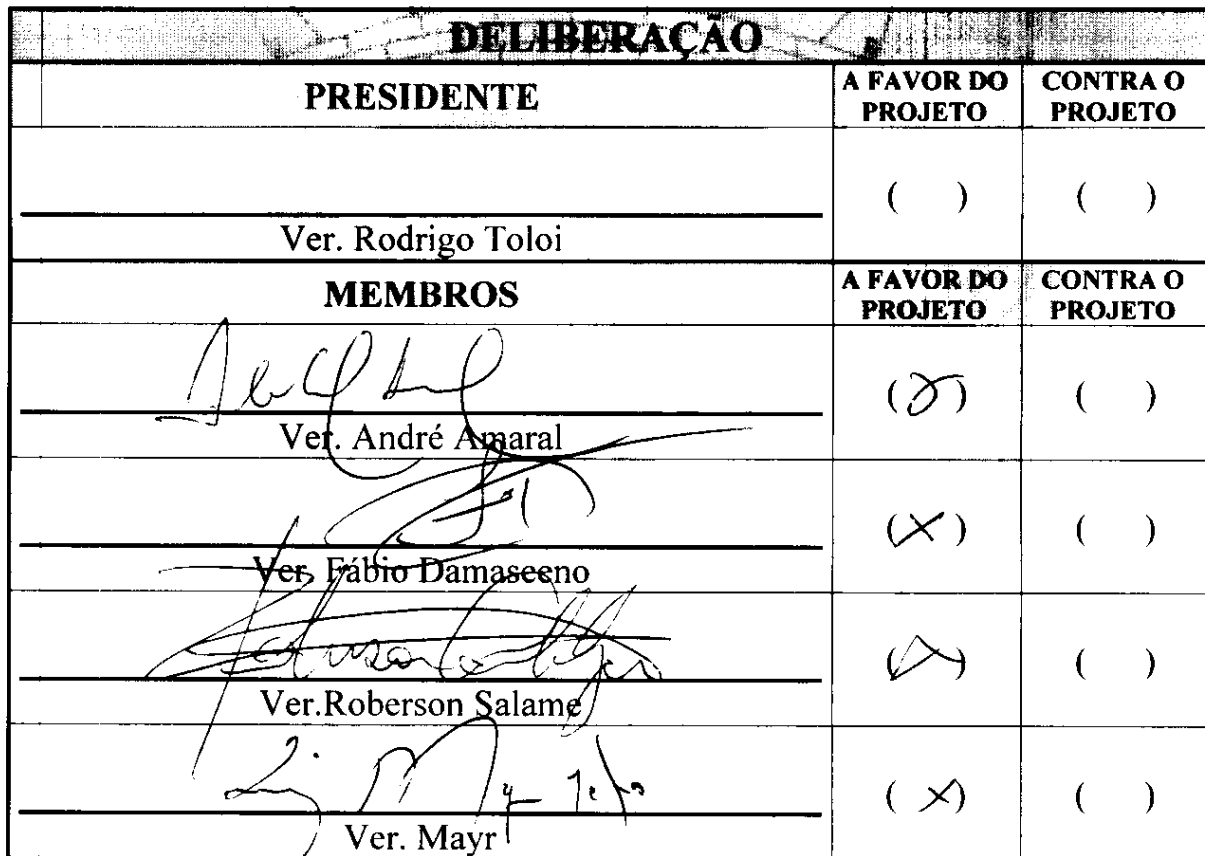 DELIBERAÇÃO
PRESIDENTE
A FAVOR DO PROJETO
CONTRA O PROJETO
( ) ( )
Ver. Rodrigo Toloi
MEMBROS
A FAVOR DO PROJETO
CONTRA O PROJETO
(X) ( )
Ver. André Amaral
(X) ( )
Ver. Fábio Damasceno
(X) ( )
Ver.Roberson Salame
(X) ( )
Ver. Mayr